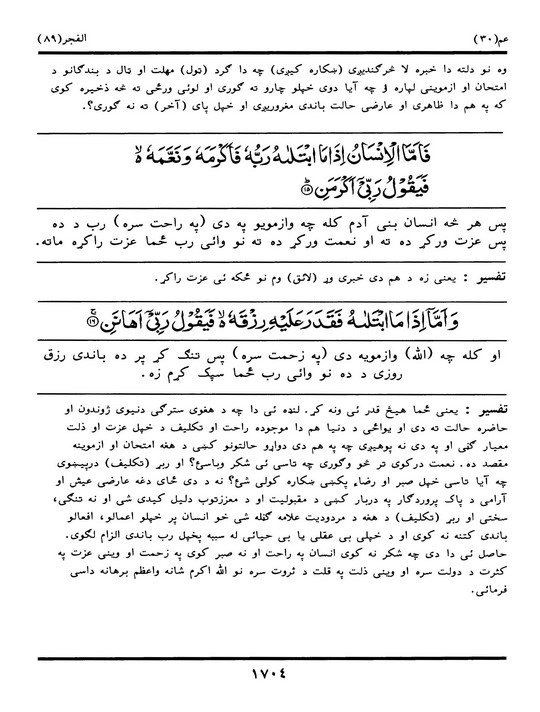 عم(۳۰) الفجر(۸۹)
وه نو دلته دا خبره لا څرګندیږي (ښکاره کیږي) چه دا ګرد (ټول) مهلت او ټال د بندګانو د
امتحان او ازموینی لپاره ؤ چه آیا دوی خپلو چارو ته ګوری او لوئی ورځی ته څه ذخیره کوی
که په هم دا ظاهری او عارضی حالت باندی مغروریږی او خپل پای (آخر) ته نه ګوری؟.
فَاَمَّا الْاِنْسَانُ اِذَا مَا ابْتَلٰىهُ رَبُّهٗ فَاَكْرَمَهٗ وَنَعَّمَهٗ ۙ
فَيَقُوْلُ رَبِّیْۤ اَكْرَمَنِ ؕ۱۵
پس هر څه انسان بنی آدم کله چه وازمویو په دی (په راحت سره) رب د ده
پس عزت ورکړ ده ته او نعمت ورکړ ده ته نو وائی رب ځما عزت راکړه ماته.
تفسیر : یعنی زه د هم دی خبری وړ (لائق) وم نو ځکه ئی عزت راکړ.
وَاَمَّاۤ اِذَا مَا ابْتَلٰىهُ فَقَدَرَ عَلَيْهِ رِزْقَهٗ ۙ فَيَقُوْلُ رَبِّیْۤ اَهَانَنِ ۚ۱۶
او کله چه (الله) وازمویه دی (په زحمت سره) پس تنګ کړ پر ده باندی رزق
روزی د ده نو وائی رب ځما سپک کړم زه.
تفسیر : یعنی ځما هیڅ قدر ئی ونه کړ. لنډه ئی دا چه د هغوی سترګی دنیوی ژوندون او
حاضره حالت ته دی او یواځی د دنیا هم دا موجوده راحت او تکلیف د خپل عزت او ذلت
معیار ګڼی او په دی نه پوهیږی چه په هم دی دواړو حالتونو کښی د هغه امتحان او ازموینه
مقصد ده. نعمت درکوی تر څو وګوری چه تاسی ئی شکر وباسئ؟ او ربړ (تکلیف) درپیښوی
چه آیا تاسی خپل صبر او رضاء پکښی ښکاره کولی شئ؟ نه د دی ځای دغه عارضی عیش او
آرامی د پاک پروردګار په دربار کښی د مقبولیت او د معززتوب دلیل کیدی شی او نه تنګی،
سختی او ربړ (تکلیف) د هغه د مردودیت علامه ګڼله شی خو انسان پر خپلو اعمالو، افعالو
باندی کتنه نه کوی او د خپلی بی عقلی یا بی حیائی له سببه پخپل رب باندی الزام لګوی.
حاصل ئی دا دی چه شکر نه کوی انسان په راحت او نه صبر کوی په زحمت او وینی عزت په
کثرت د دولت سره او وینی ذلت په قلت د ثروت سره نو الله اکرم شانه واعظم برهانه داسی
فرمائی.
۱۷۰۴